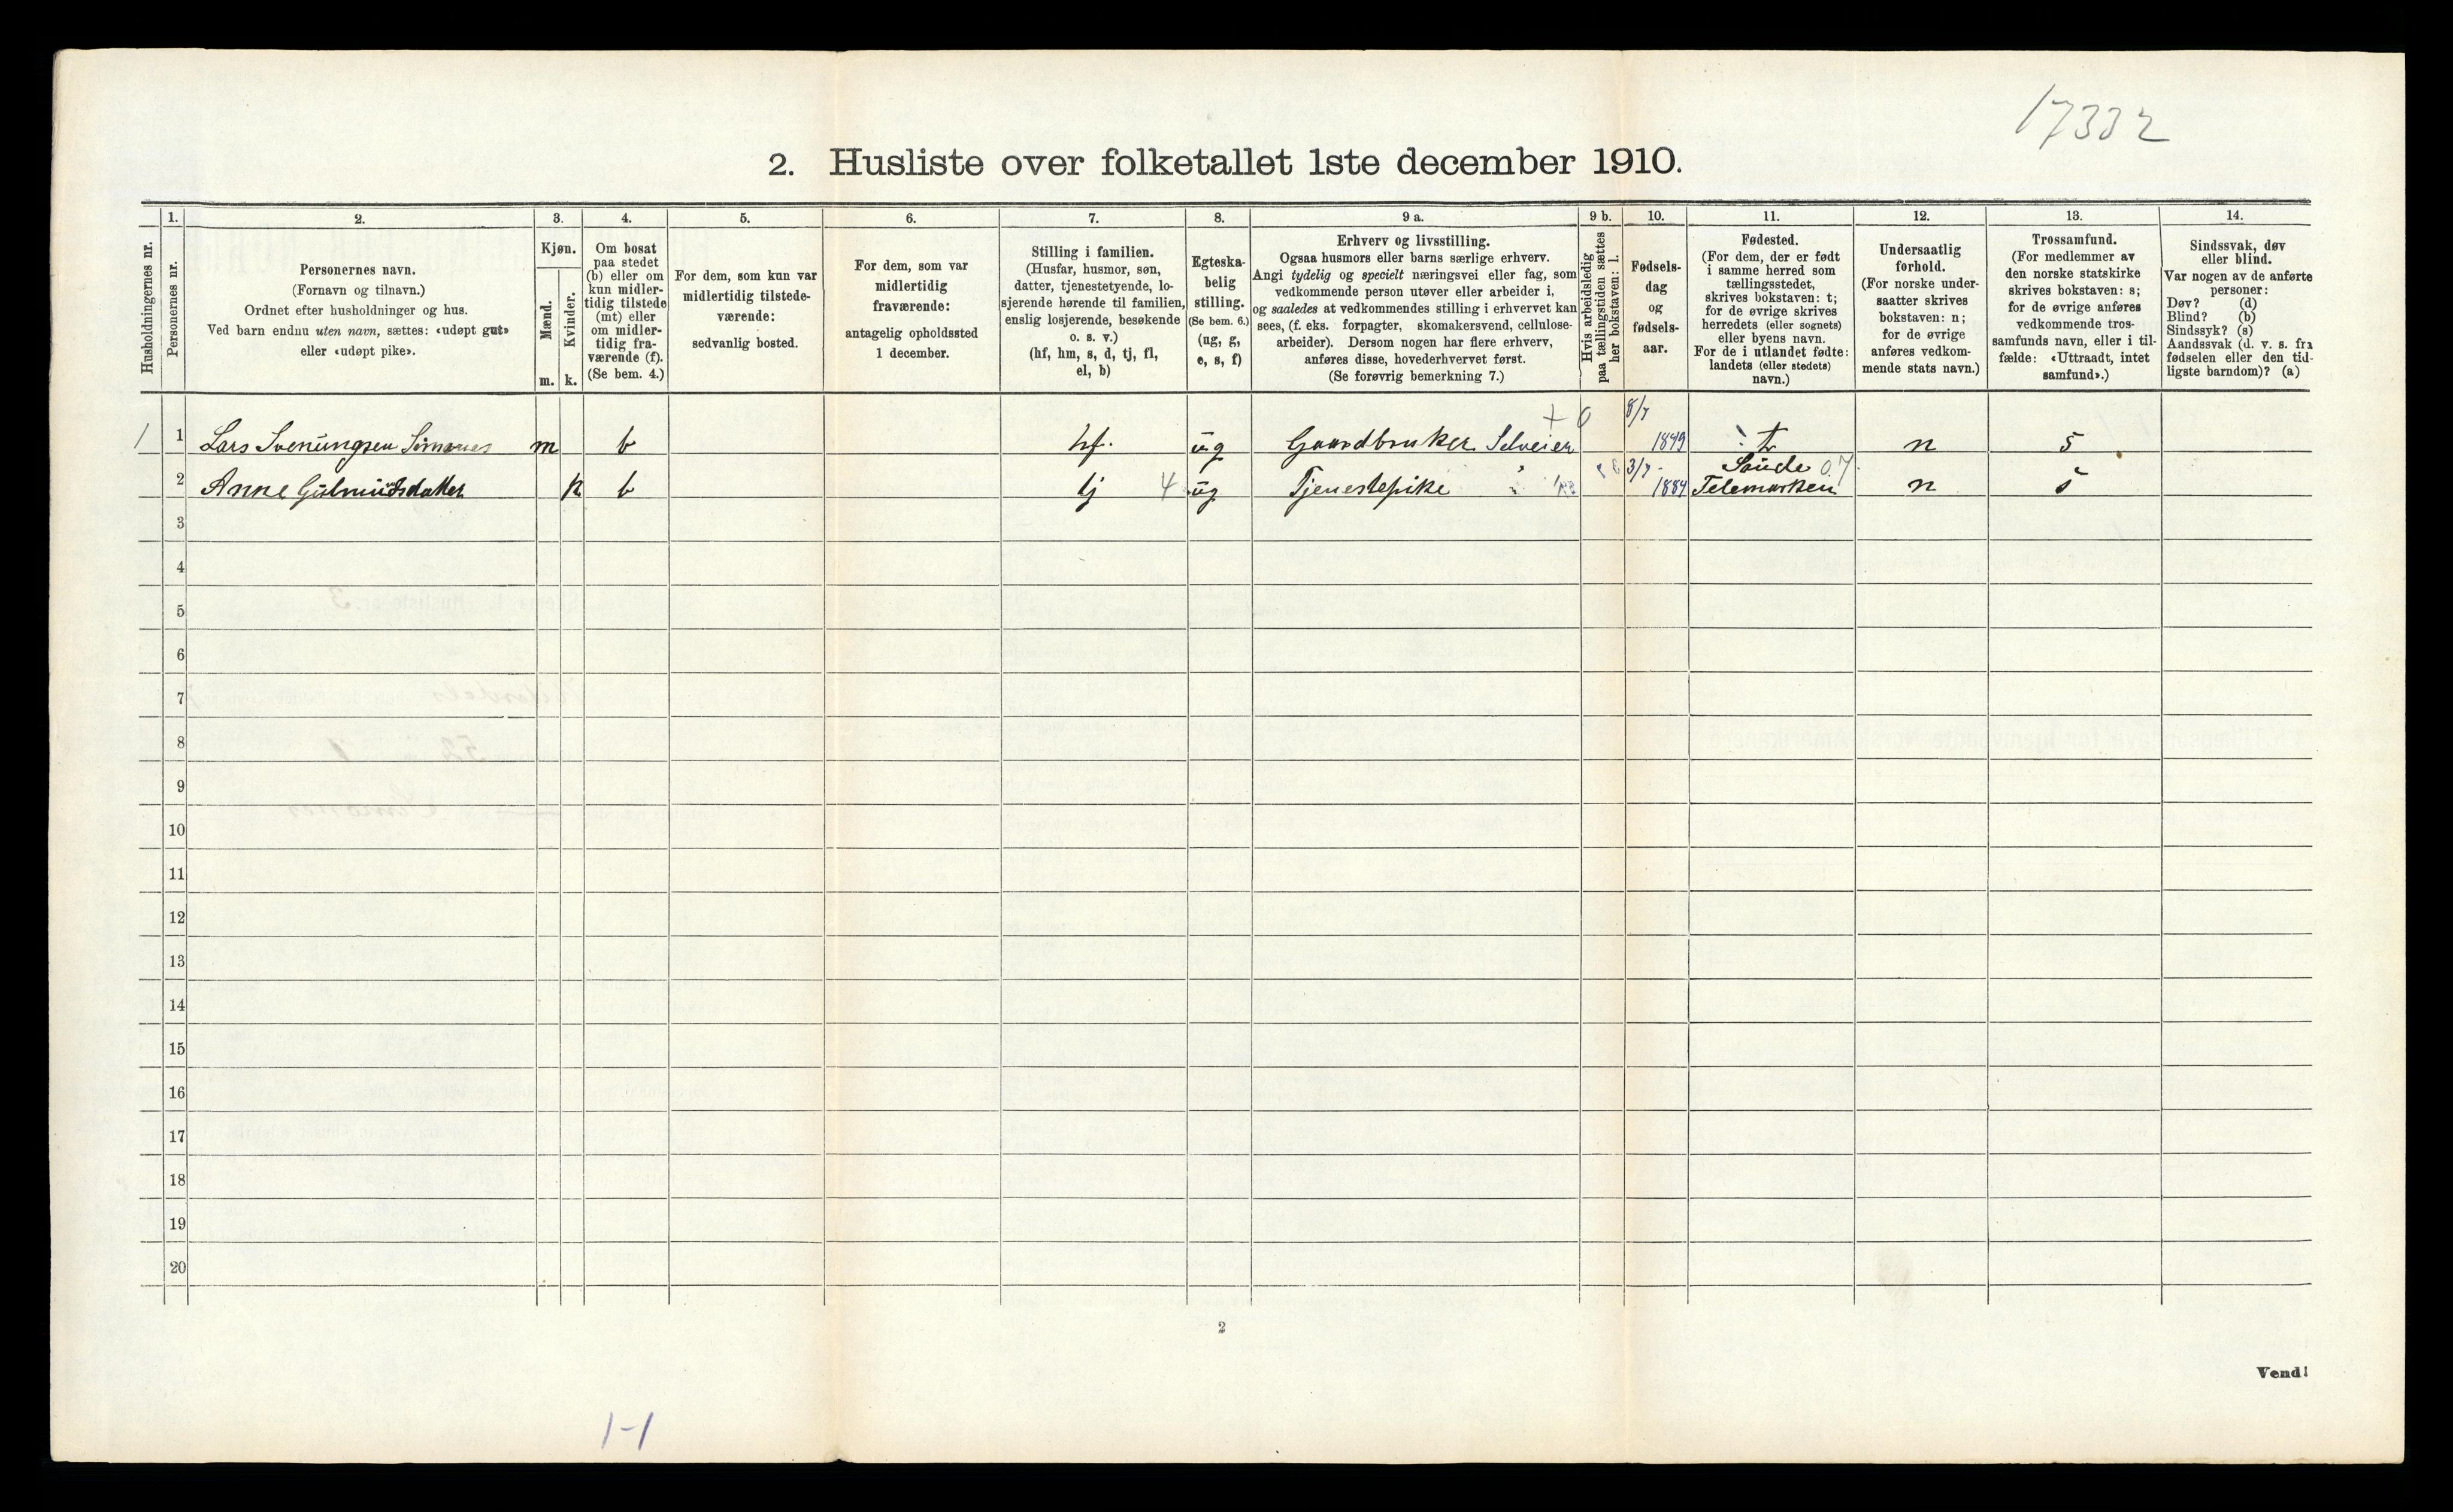 17332
2. Husliste over folketallet 1ste december 1910.
1. 2. 3. 4. 5. 6. 7. 8. 9 a. 9 b. 10. 11. 12. 13. 14.
Husholdningernes nr.
Personernes nr.
Personernes navn.
(Fornavn og tilnavn.)
Ordnet efter husholdninger og hus.
Ved barn endnu uten navn, sættes: «udøpt gut»
eller «udøpt pike».
Kjøn.
Mænd.
Kvinder.
m. k.
Om bosat
paa stedet
(b) eller om
kun midler-
tidig tilstede
(mt) eller
om midler-
tidig fra-
værende (f).
(Se bem. 4.)
For dem, som kun var
midlertidig tilstede-
værende:
sedvanlig bosted.
For dem, som var
midlertidig
fraværende:
antagelig opholdssted
1 december.
Stilling i familien.
(Husfar, husmor, søn,
datter, tjenestetyende, lo-
sjerende hørende til familien,
enslig losjerende, besøkende
o. s. v.)
(hf, hm, s, d, tj, fl,
el, b)
Egteska-
belig
stilling.
(Se bem. 6.)
(ug, g,
e, s, f)
Erhverv og livsstilling.
Ogsaa husmors eller barns særlige erhverv.
Angi tydelig og specielt næringsvei eller fag, som
vedkommende person utøver eller arbeider i,
og saaledes at vedkommendes stilling i erhvervet kan
sees, (f. eks. forpagter, skomakersvend, cellulose-
arbeider). Dersom nogen har flere erhverv,
anføres disse, hovederhvervet først.
(Se forøvrig bemerkning 7.)
Hvis arbeidsledig
paa tællingstiden sættes
her bokstaven: l.
Fødsels-
dag
og
fødsels-
aar.
Fødested.
(For dem, der er født
i samme herred som
tællingsstedet,
skrives bokstaven: t;
for de øvrige skrives
herredets (eller sognets)
eller byens navn.
For de i utlandet fødte:
landets (eller stedets)
navn.)
Undersaatlig
forhold.
(For norske under-
saatter skrives
bokstaven: n;
for de øvrige
anføres vedkom-
mende stats navn.)
Trossamfund.
(For medlemmer av
den norske statskirke
skrives bokstaven: s;
for de øvrige anføres
vedkommende tros-
samfunds navn, eller i til-
fælde: «Uttraadt, intet
samfund».)
Sindssvak, døv
eller blind.
Var nogen av de anførte
personer:
Døv? (d)
Blind? (b)
Sindssyk? (s)
Aandssvak (d. v. s. fra
fødselen eller den tid-
ligste barndom)? (a)
+ 0 8/7
1 1 Lars Svenungsen Simones m b hf. ug Gaardbruker Selveier 1849 t n s
3/7 Saude 07
2 Anne Gudmundsdatter k b tj 4 ug Tjenestepike 1884 Telemarken n s
3
4
5
6
7
8
9
10
11
12
13
14
15
16
17
18
19
20
2
Vend!
1-1